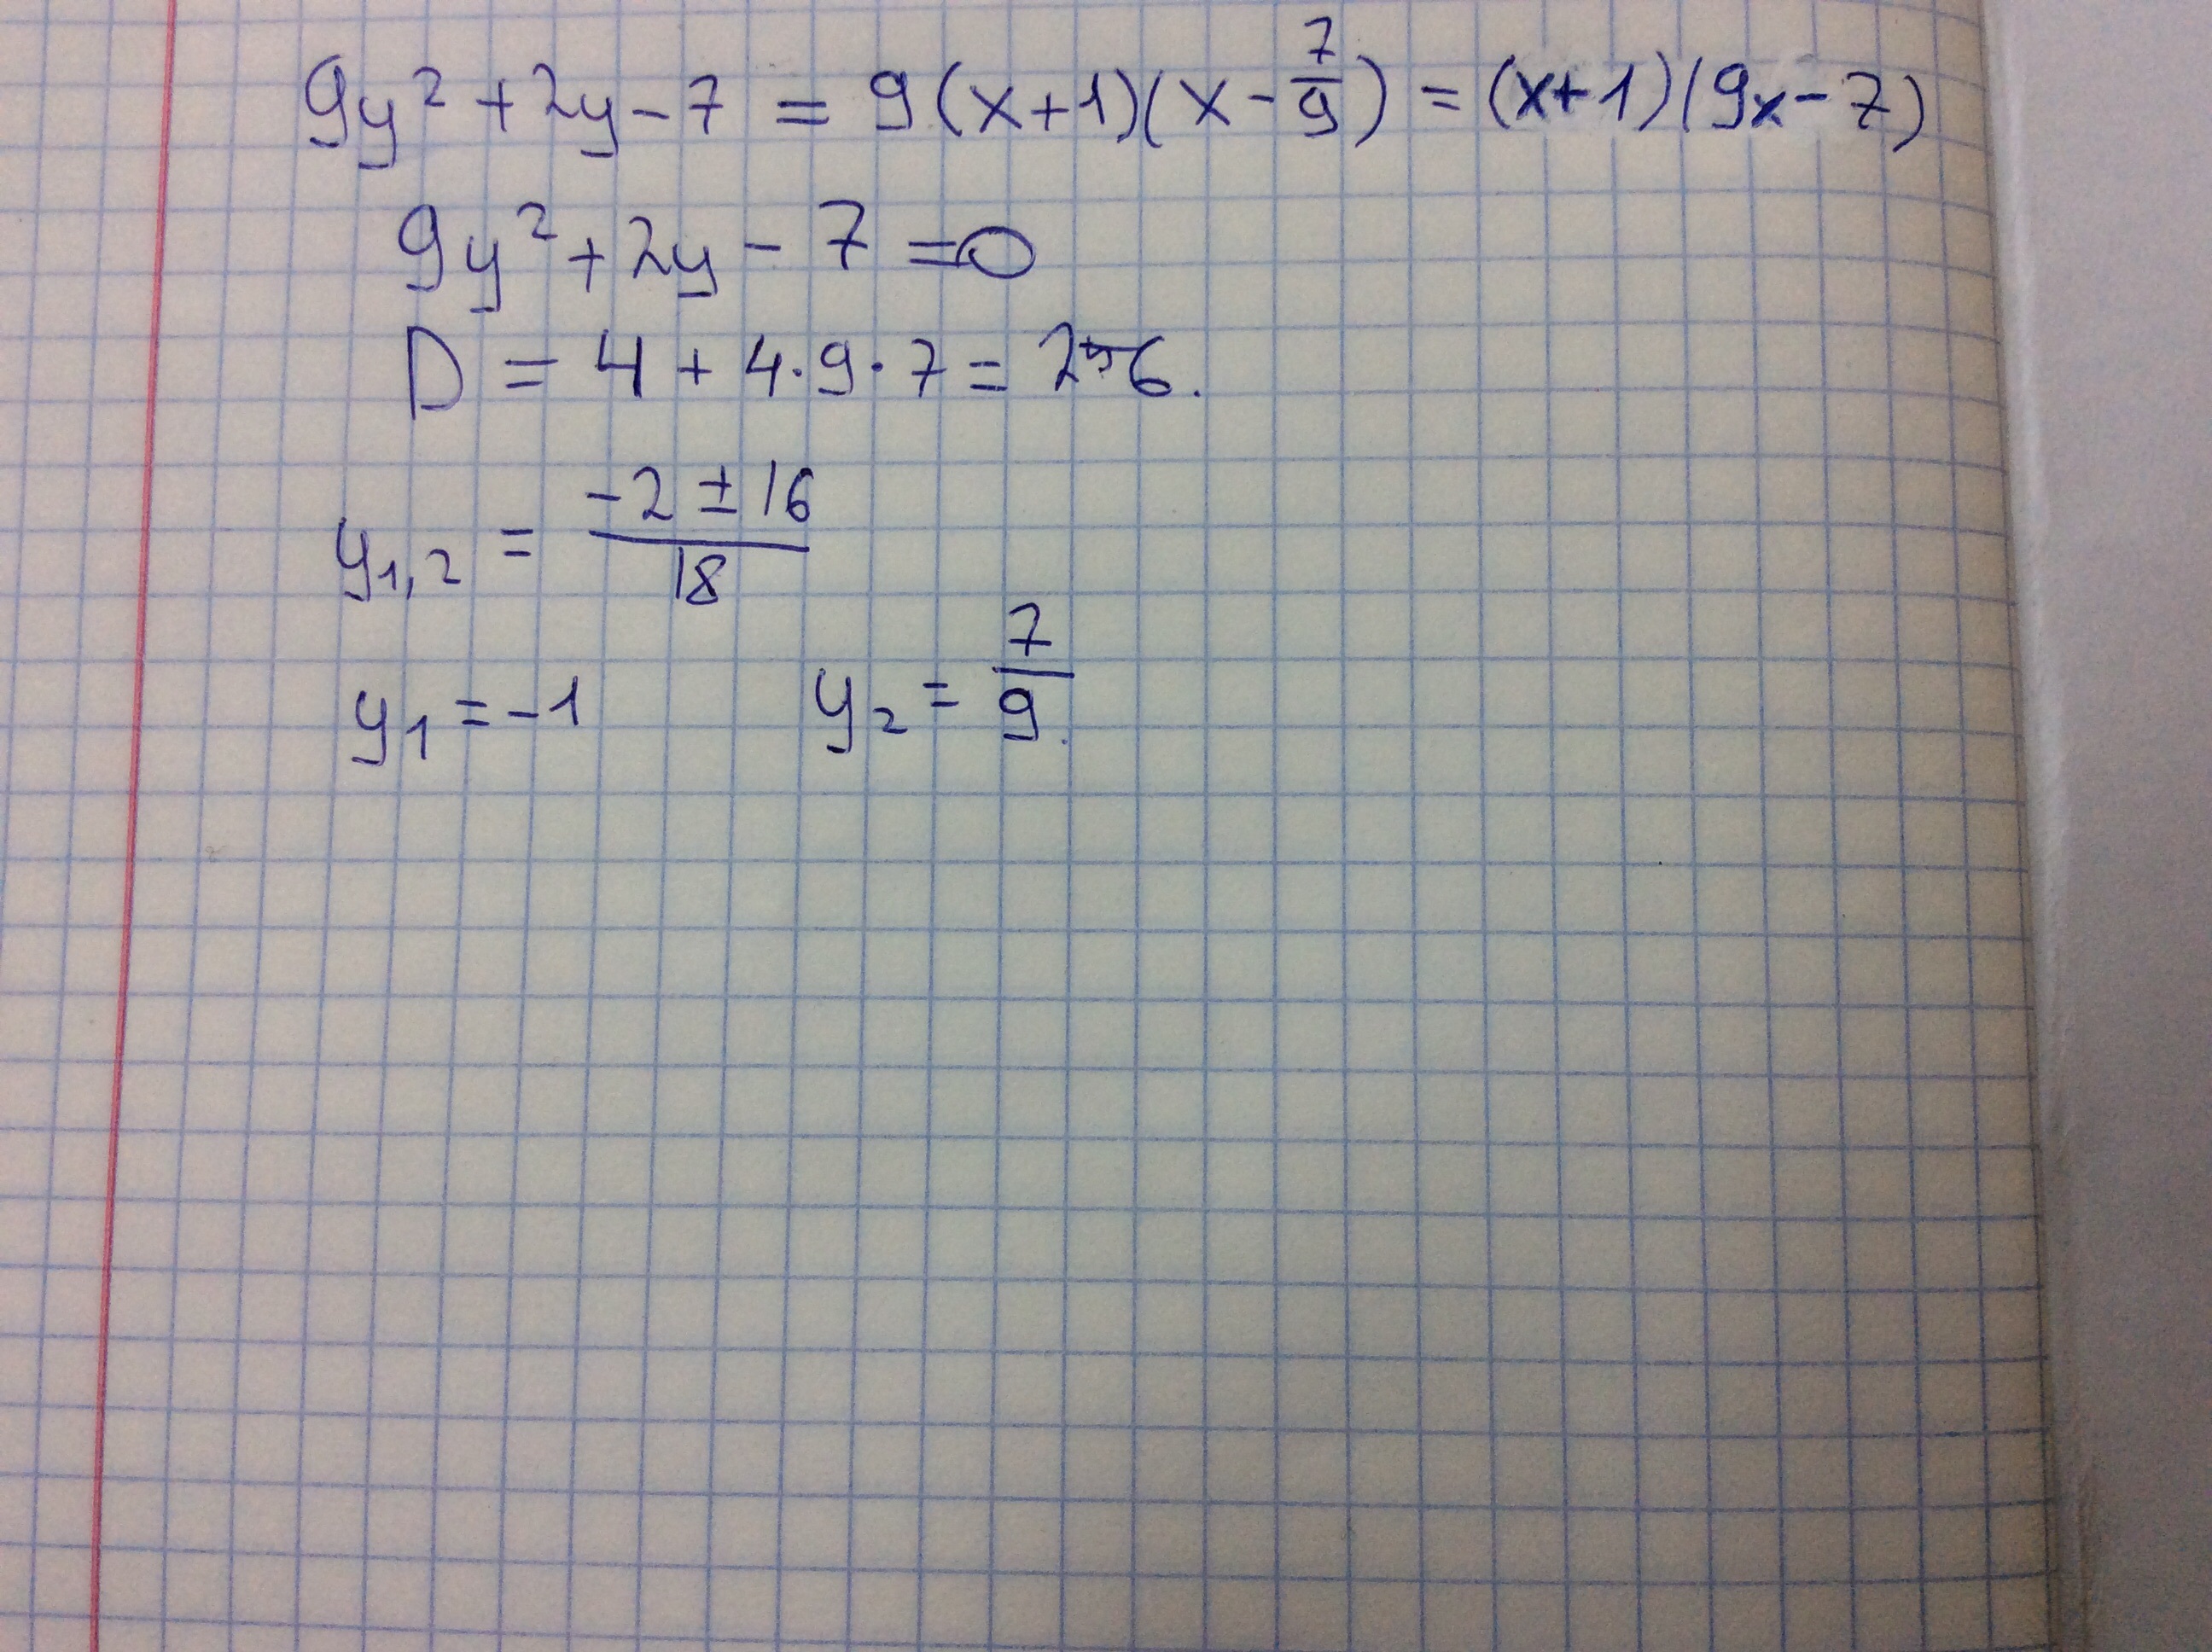 9y² + 2y - 7 = 9(x+1)(x - 7/9) = (x+1)(9x-7)
9y² + 2y - 7 = 0
D = 4 + 4·9·7 = 256.
y₁,₂ = (-2 ± 16)/18
y₁ = -1 y₂ = 7/9.